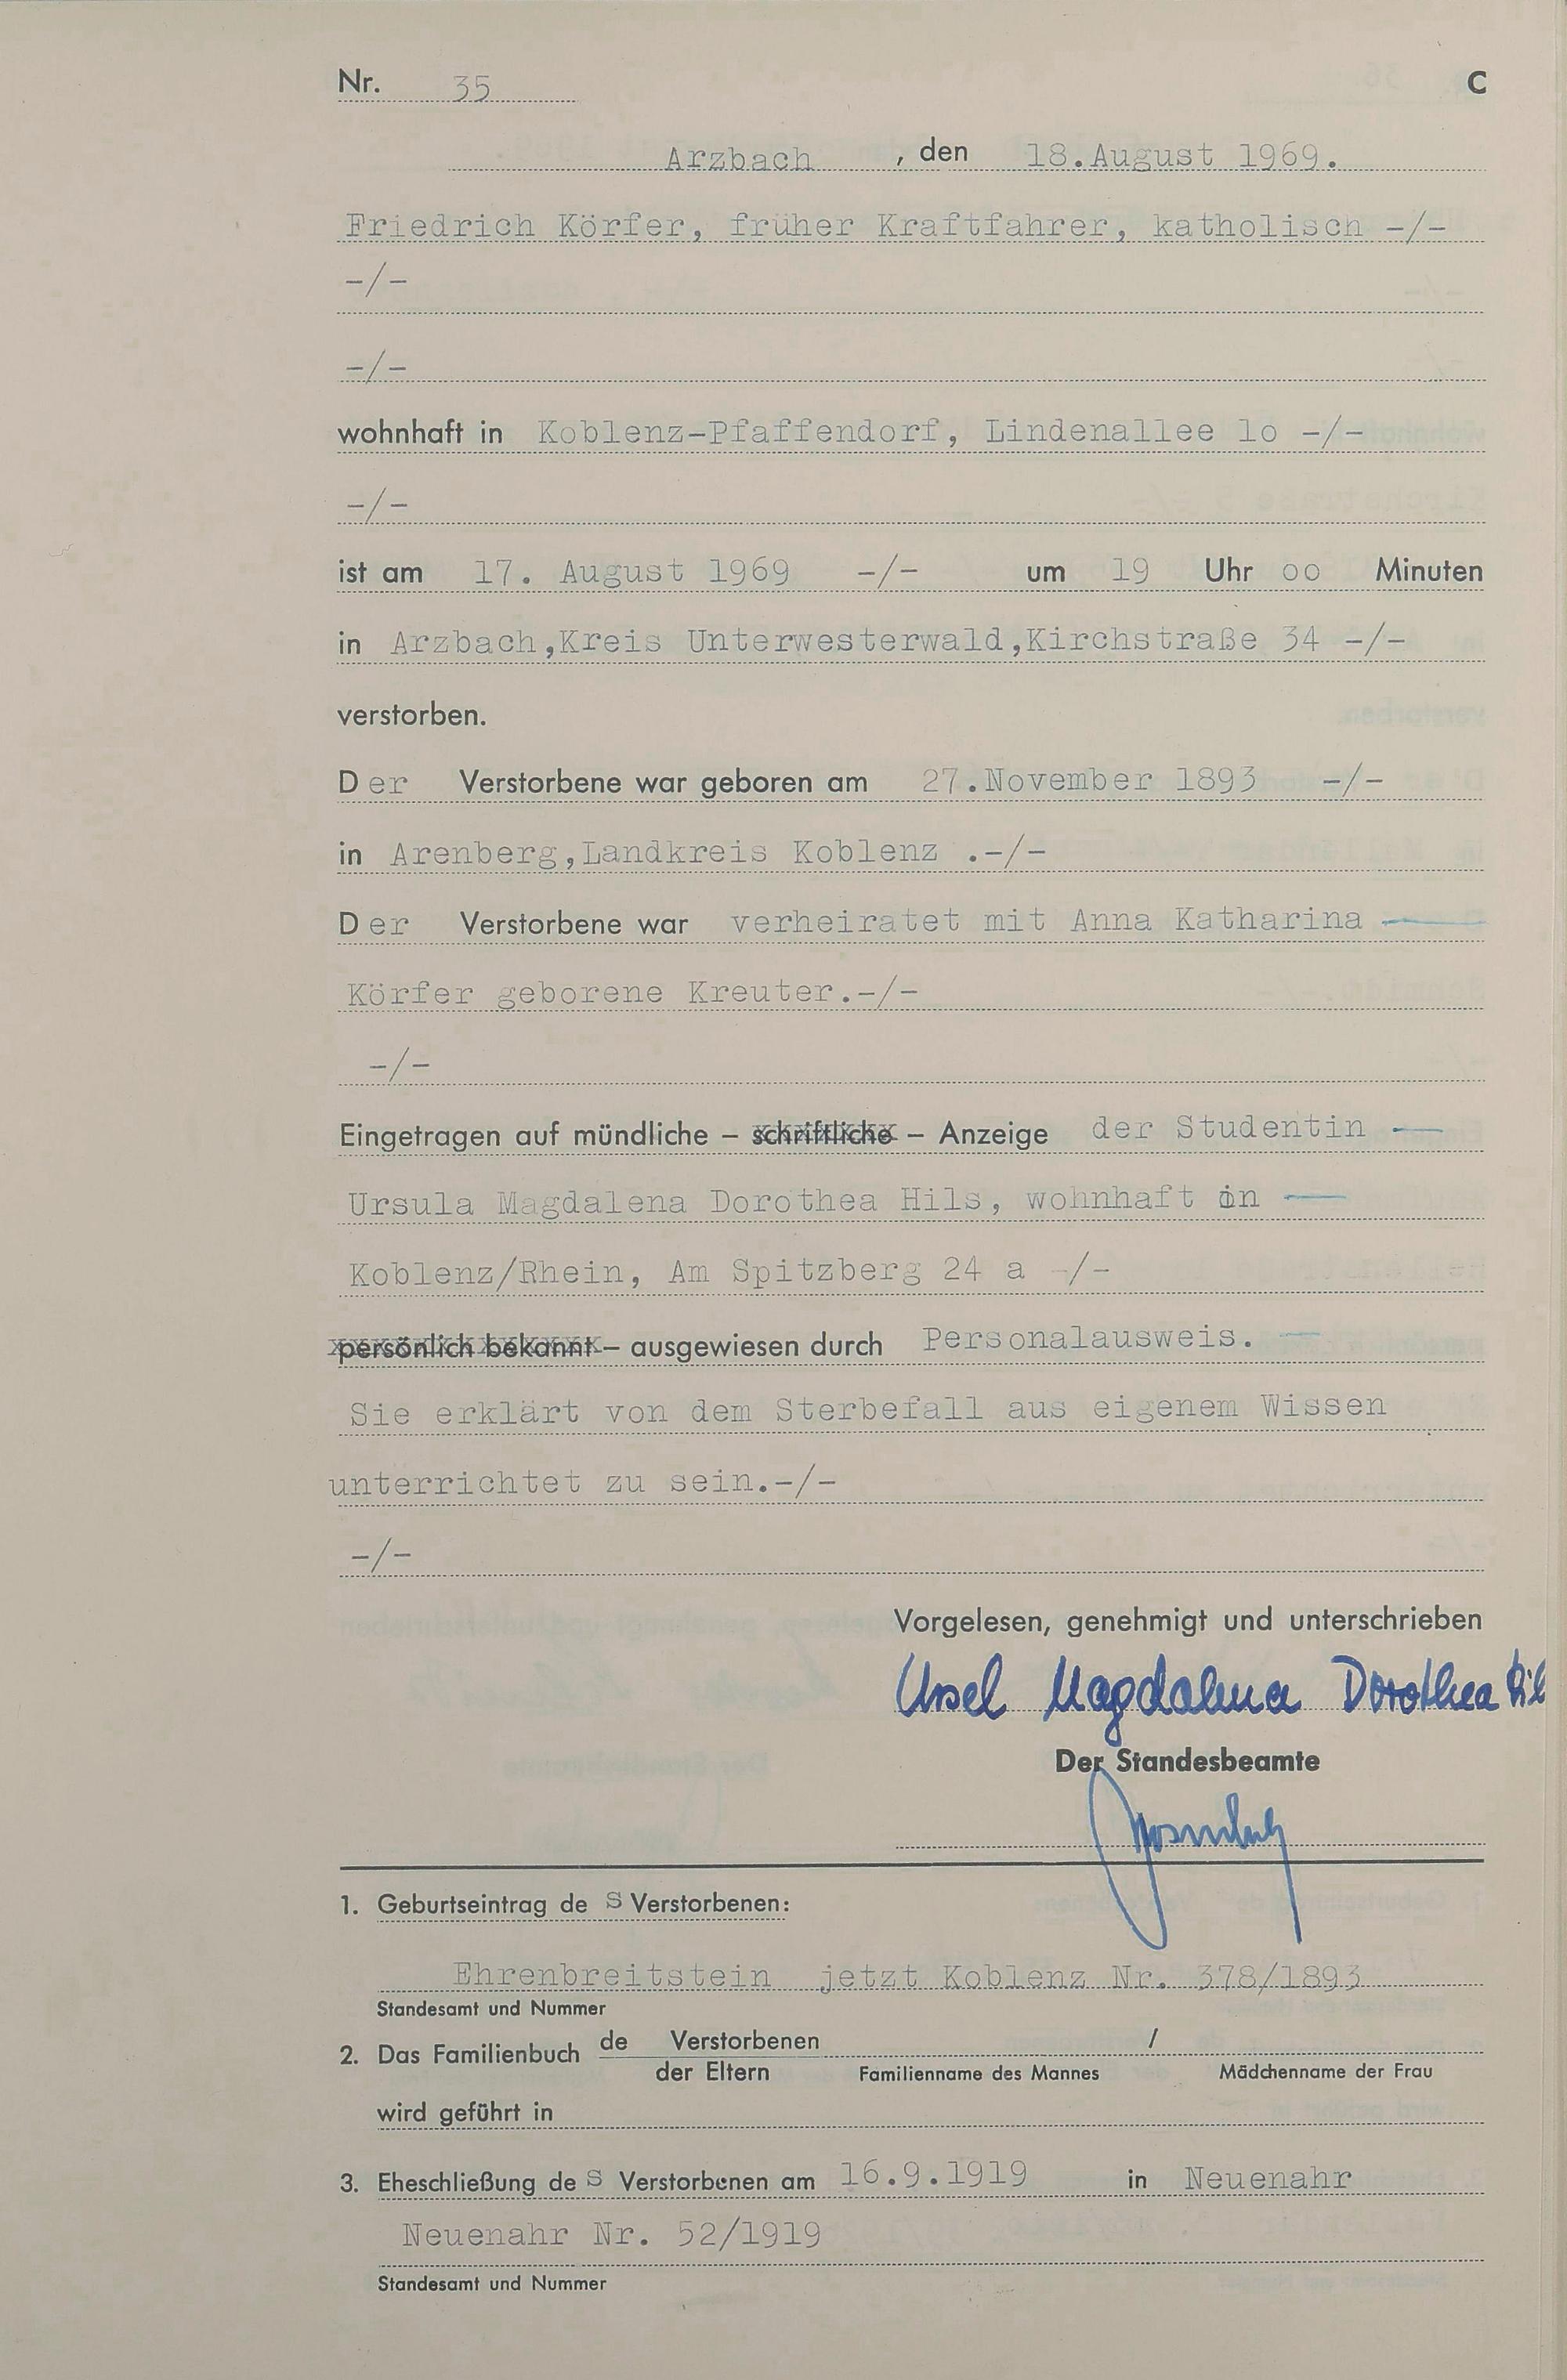 Nr. 35 C
Arzbach , den 18.August 1969.
Friedrich Körfer, früher Kraftfahrer, katholisch -/-
-/-
-/-
wohnhaft in Koblenz-Pfaffendorf, Lindenallee lo -/-
-/-
ist am 17. August 1969 -/- um 19 Uhr oo Minuten
in Arzbach,Kreis Unterwesterwald,Kirchstraße 34 -/-
verstorben.
Der Verstorbene war geboren am 27.November 1893 -/-
in Arenberg,Landkreis Koblenz .-/-
Der Verstorbene war verheiratet mit Anna Katharina —
Körfer geborene Kreuter.-/-
-/-
Eingetragen auf mündliche – schriftliche – Anzeige der Studentin —
Ursula Magdalena Dorothea Hils, wohnhaft in —
Koblenz/Rhein, Am Spitzberg 24 a -/-
persönlich bekannt – ausgewiesen durch Personalausweis. —
Sie erklärt von dem Sterbefall aus eigenem Wissen
unterrichtet zu sein.-/-
-/-
Vorgelesen, genehmigt und unterschrieben
Ursel Magdalena Dorothea Hil
Der Standesbeamte
1. Geburtseintrag de s Verstorbenen:
Ehrenbreitstein jetzt Koblenz Nr. 378/1893
Standesamt und Nummer
2. Das Familienbuch de Verstorbenen /
der Eltern Familienname des Mannes Mädchenname der Frau
wird geführt in
3. Eheschließung de s Verstorbenen am 16.9.1919 in Neuenahr
Neuenahr Nr. 52/1919
Standesamt und Nummer